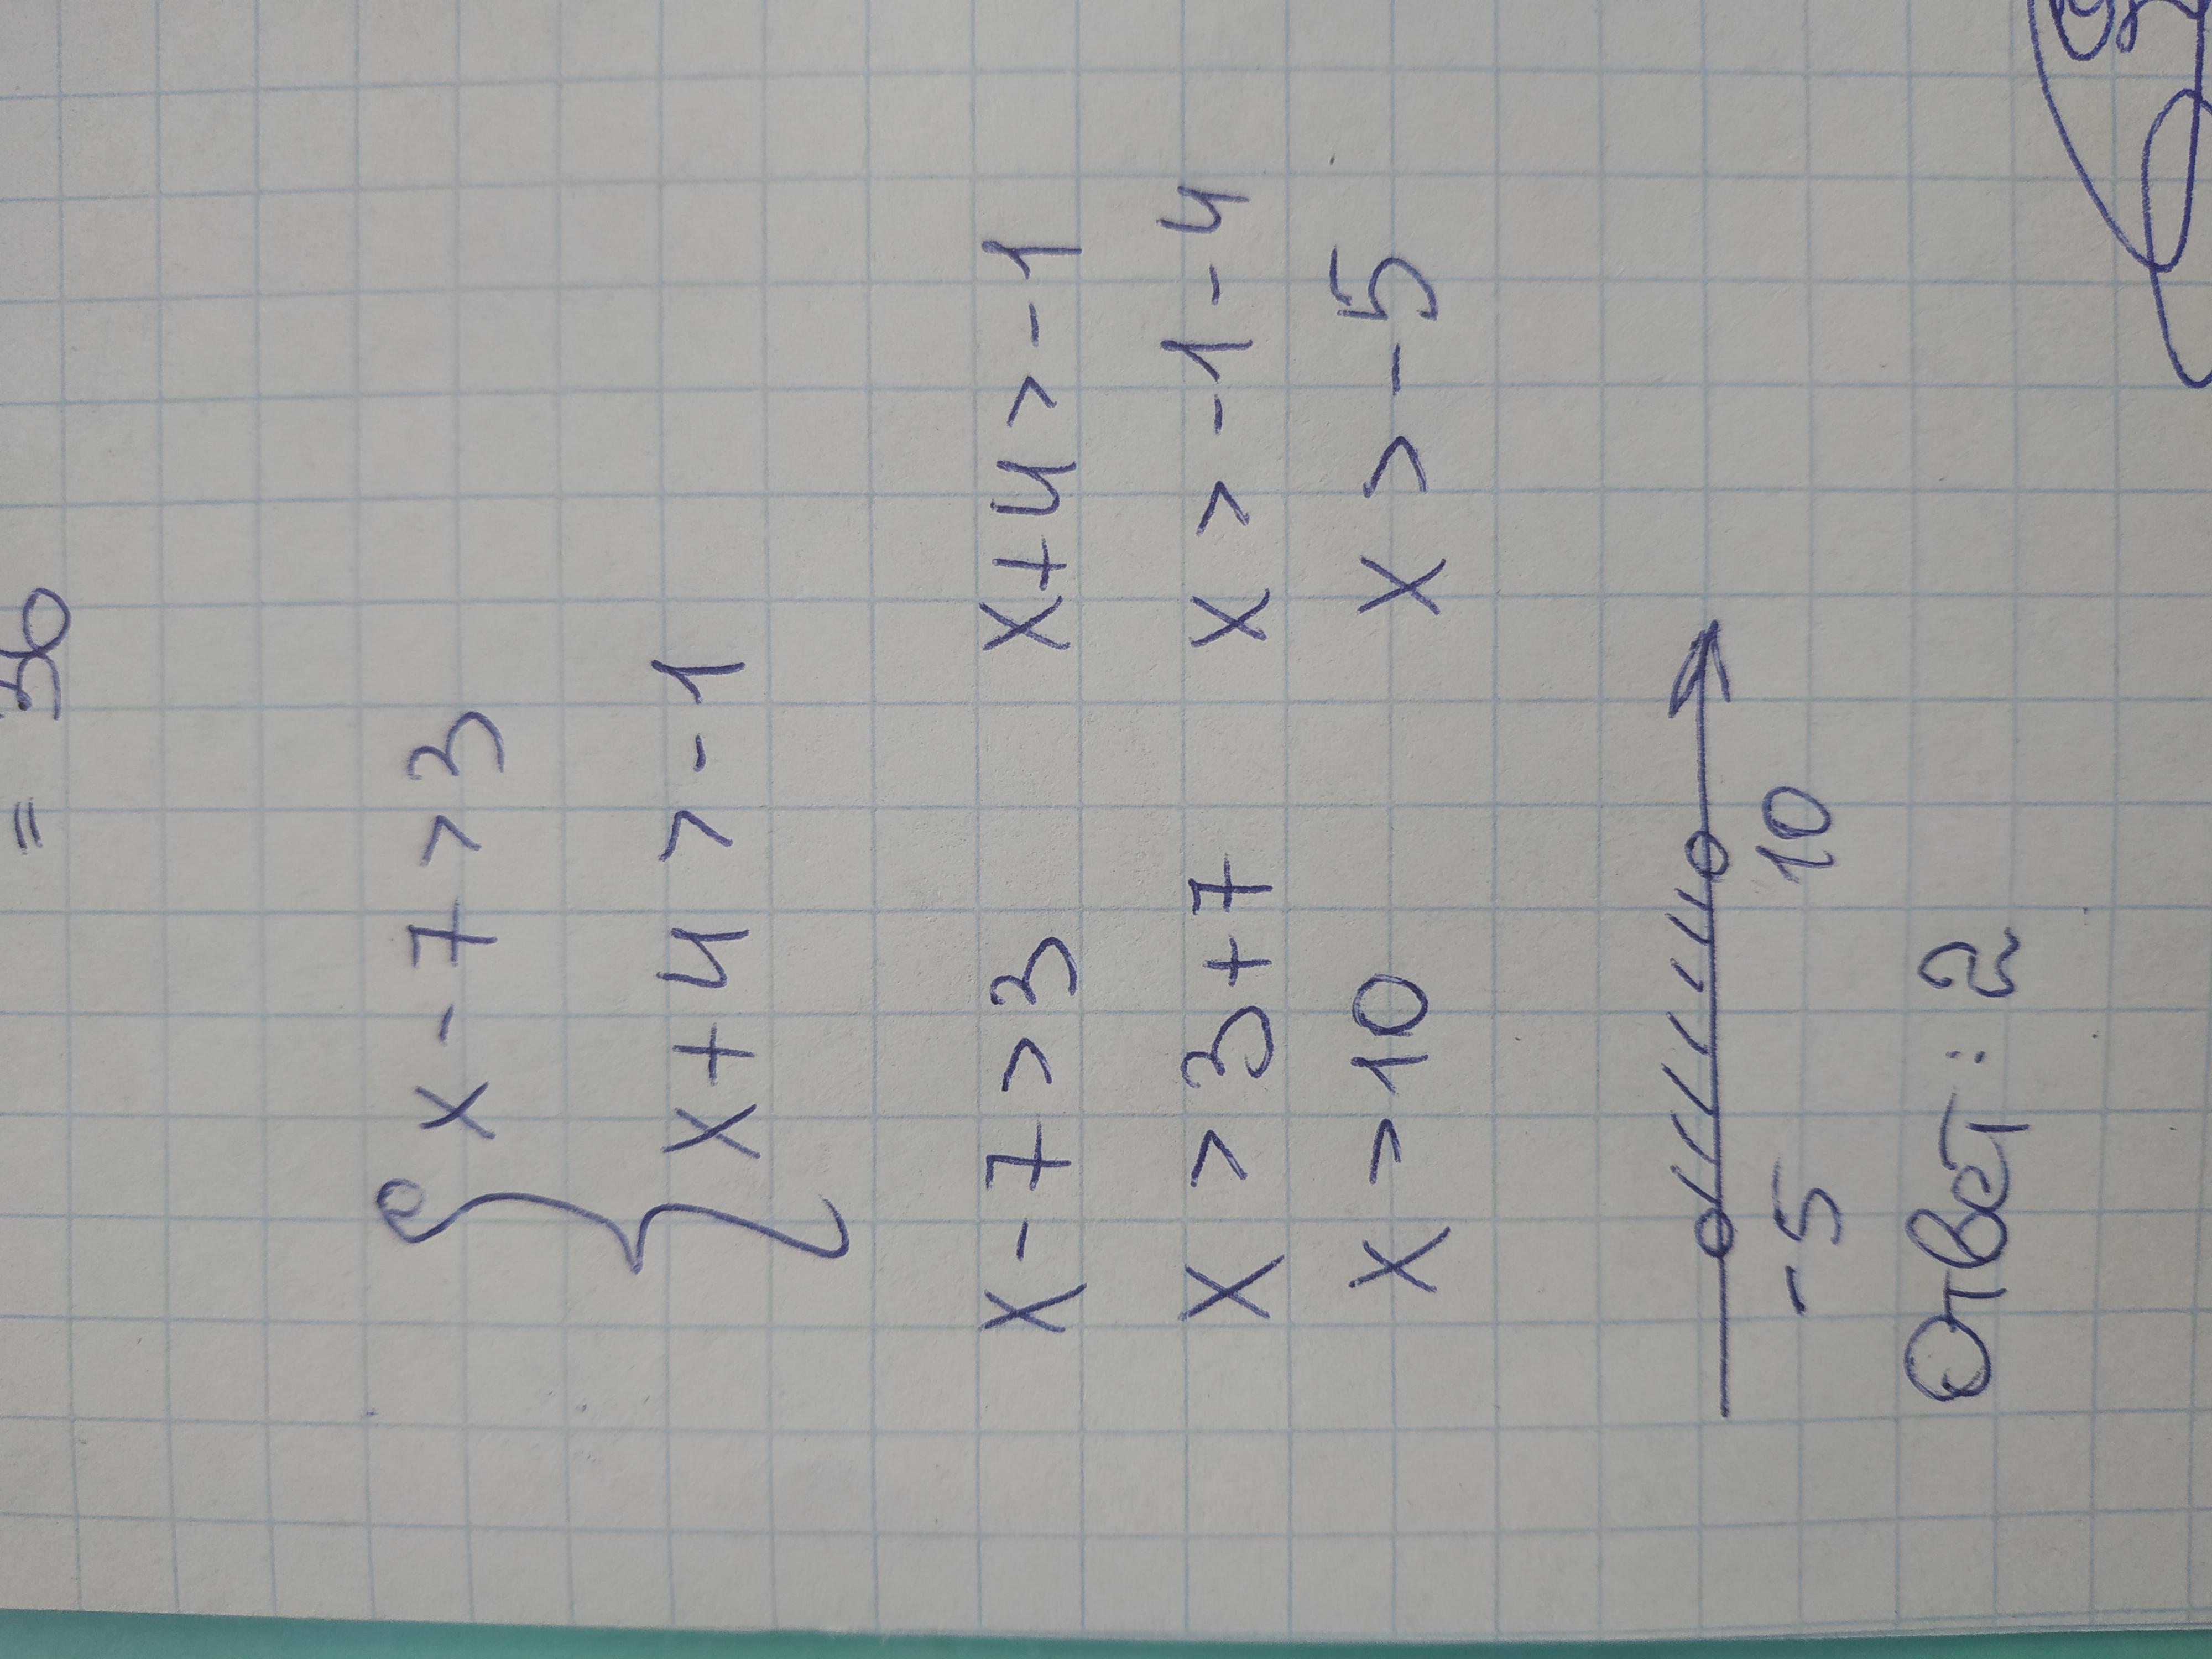 = 36
{ x - 7 > 3
x + 4 > -1
x - 7 > 3 x + 4 > -1
x > 3 + 7 x > -1 - 4
x > 10 x > -5
-5 10
Ответ: 2